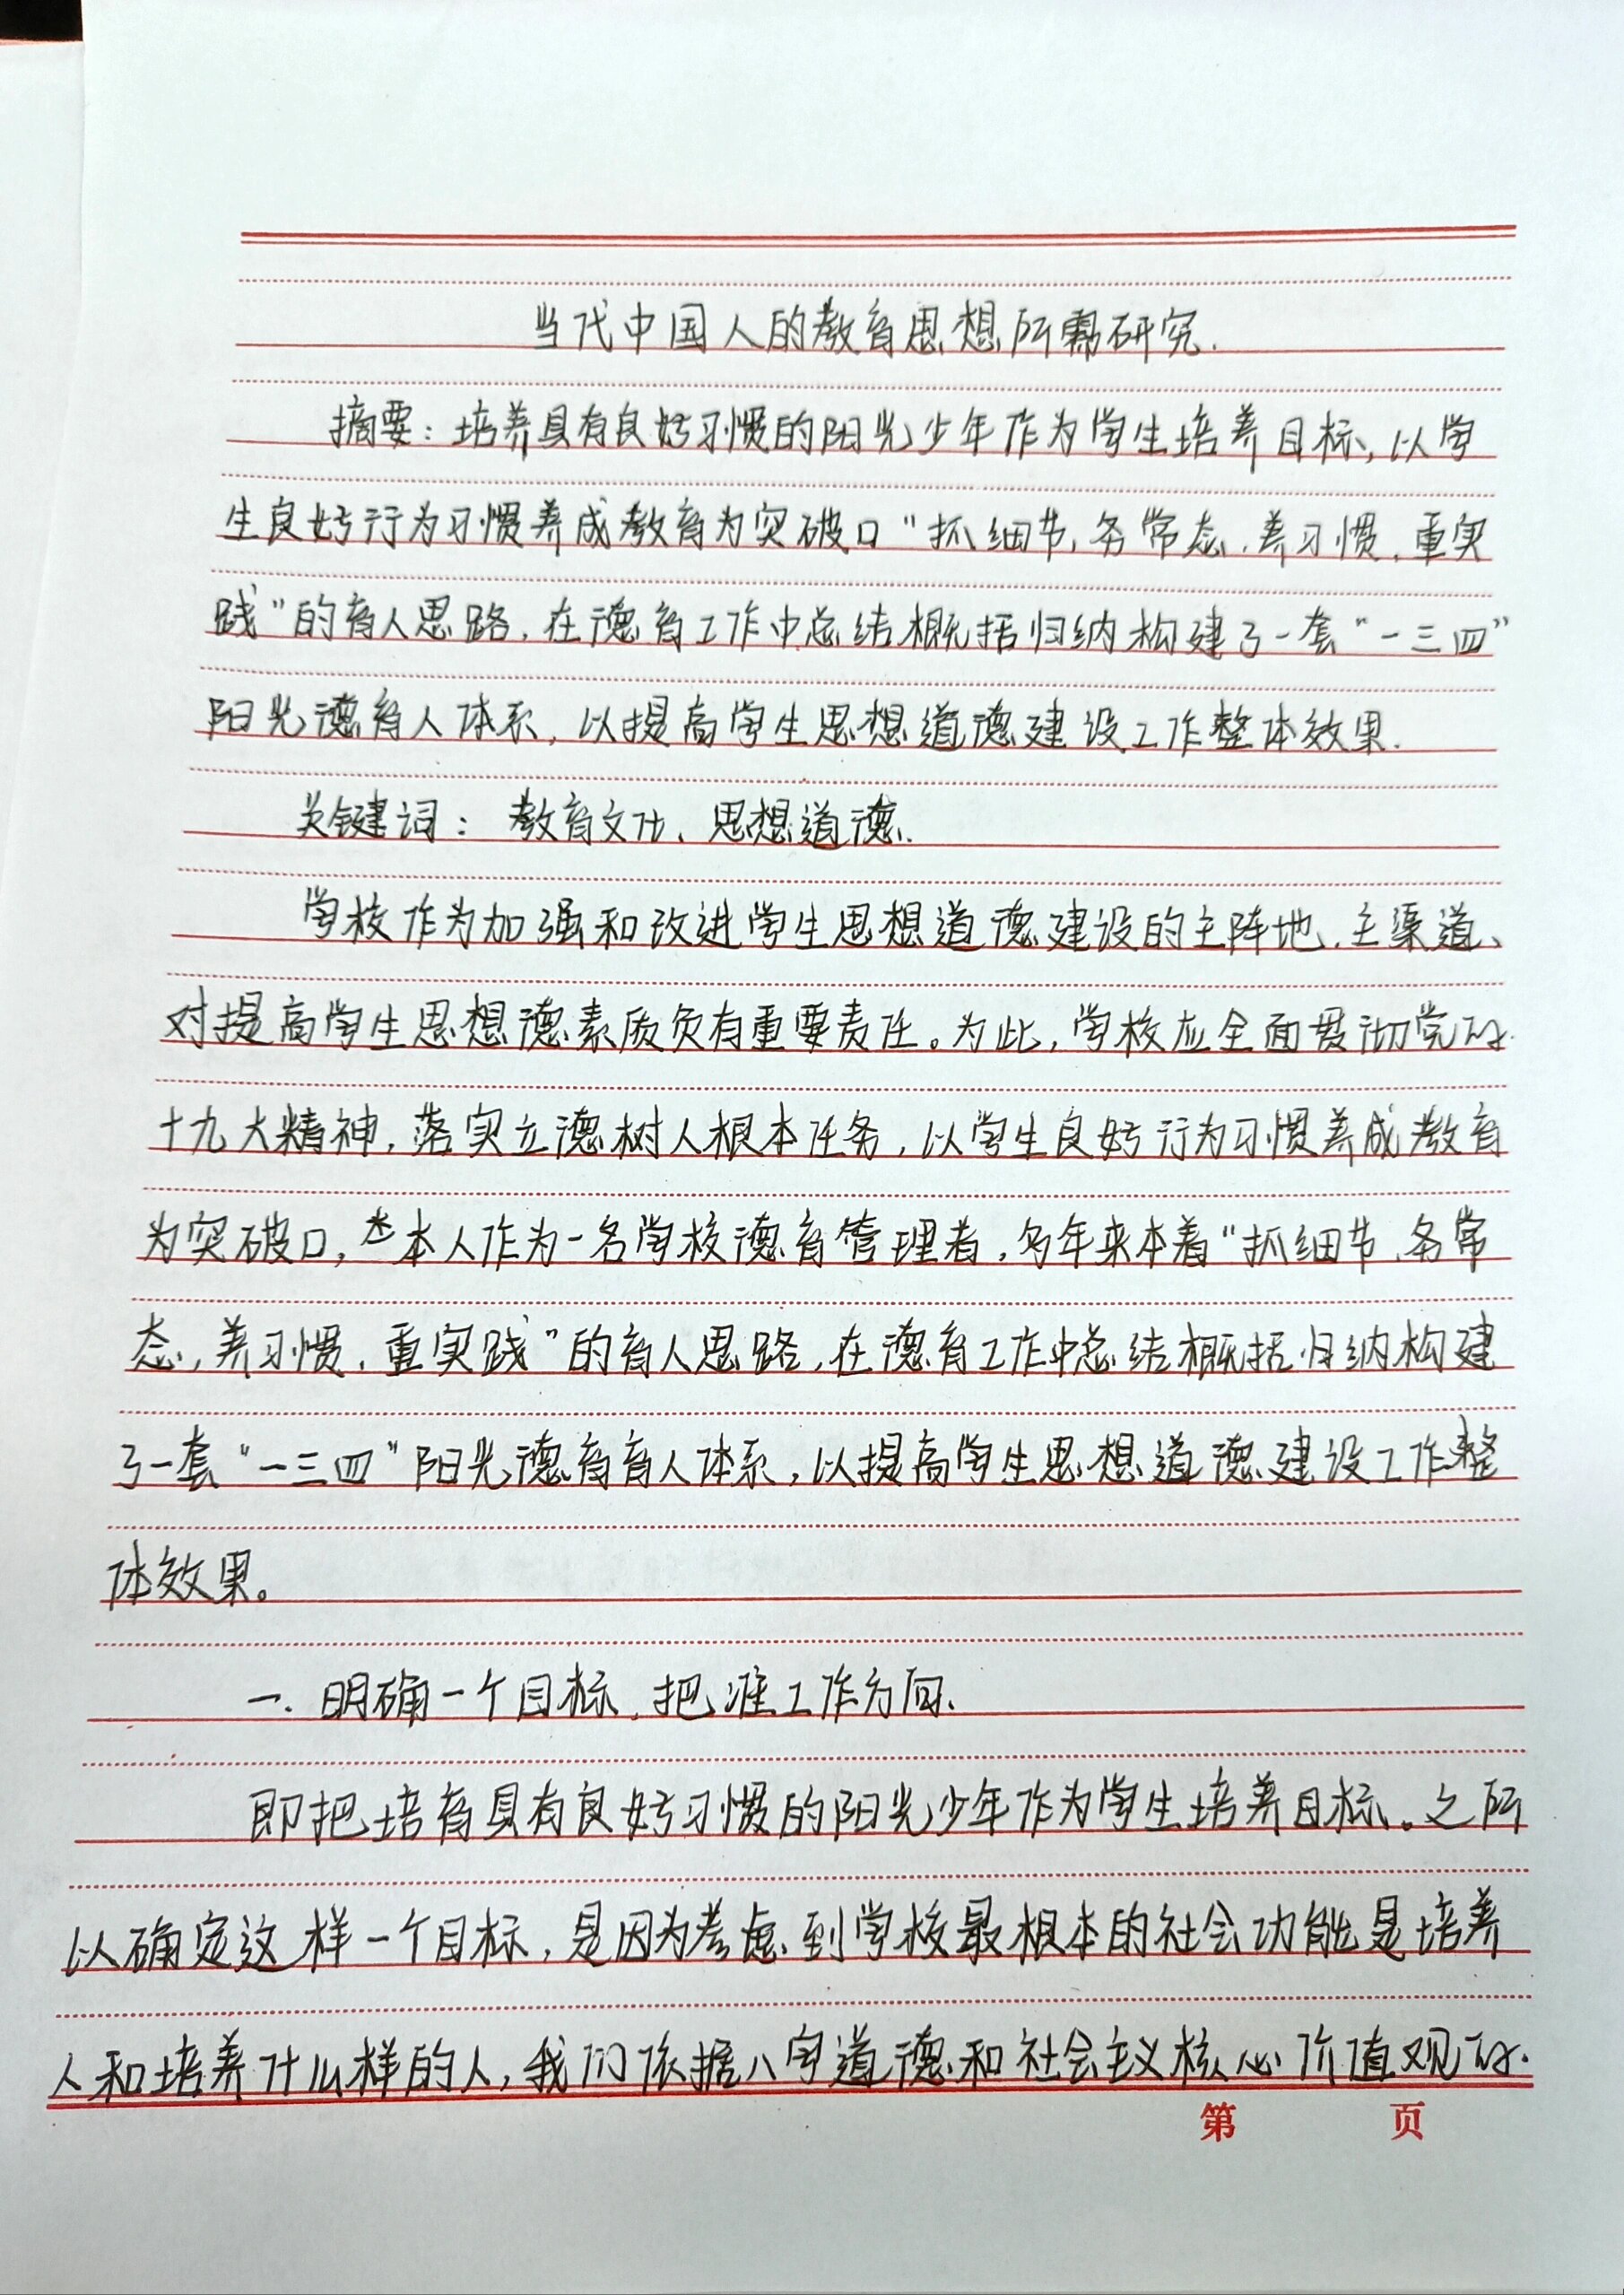 当代中国人的教育思想所需研究.
摘要：培养具有良好习惯的阳光少年作为学生培养目标，以学
生良好行为习惯养成教育为突破口"抓细节，务常态，养习惯，重实
践"的育人思路，在德育工作中总结概括归纳构建了一套"一三四"
阳光德育人体系，以提高学生思想道德建设工作整体效果.
关键词：教育文化、思想道德.
学校作为加强和改进学生思想道德建设的主阵地，主渠道、
对提高学生思想德素质负有重要责任。为此，学校应全面贯彻党的
十九大精神，落实立德树人根本任务，以学生良好行为习惯养成教育
为突破口，本人作为一名学校德育管理者，多年来本着"抓细节，务常
态，养习惯，重实践"的育人思路，在德育工作中总结概括归纳构建
了一套"一三四"阳光德育育人体系，以提高学生思想道德建设工作整
体效果。
一.明确一个目标，把准工作方向、
即把培育具有良好习惯的阳光少年作为学生培养目标。之所
以确定这样一个目标，是因为考虑到学校最根本的社会功能是培养
人和培养什么样的人，我们依据八字道德和社会主义核心价值观的
第 页